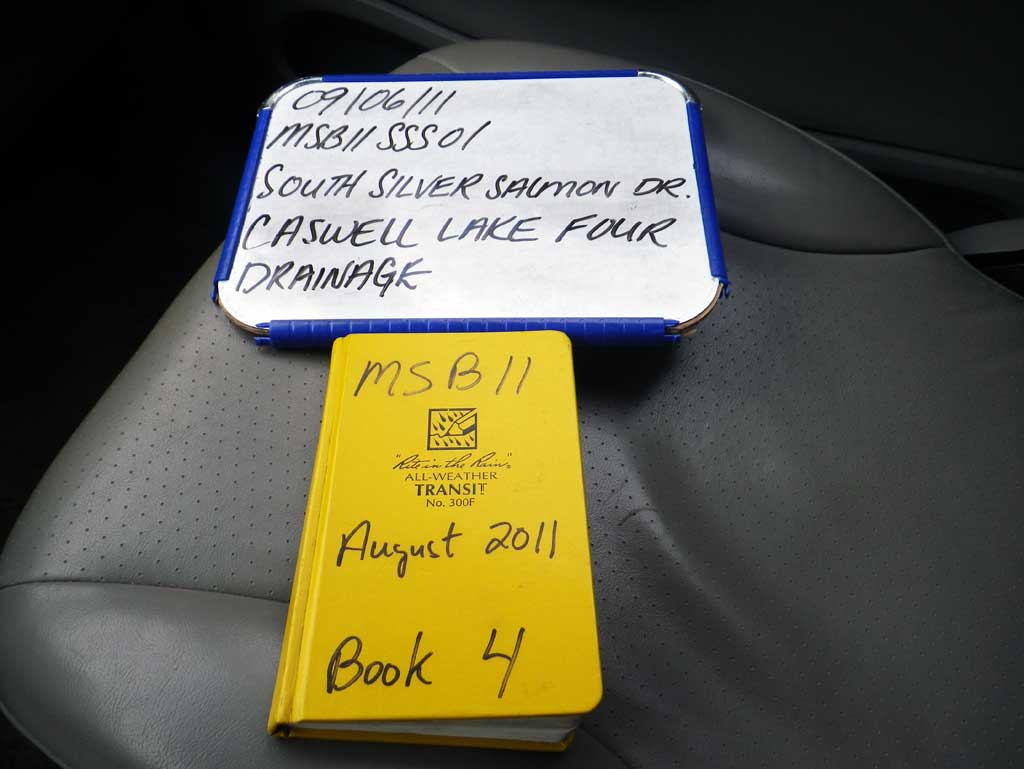 09/06/11
MSB11SSS01
SOUTH SILVER SALMON DR.
CASWELL LAKE FOUR
DRAINAGE
MSB11
"Rite in the Rain"
ALL-WEATHER
TRANSIT
No. 300F
August 2011
Book 4